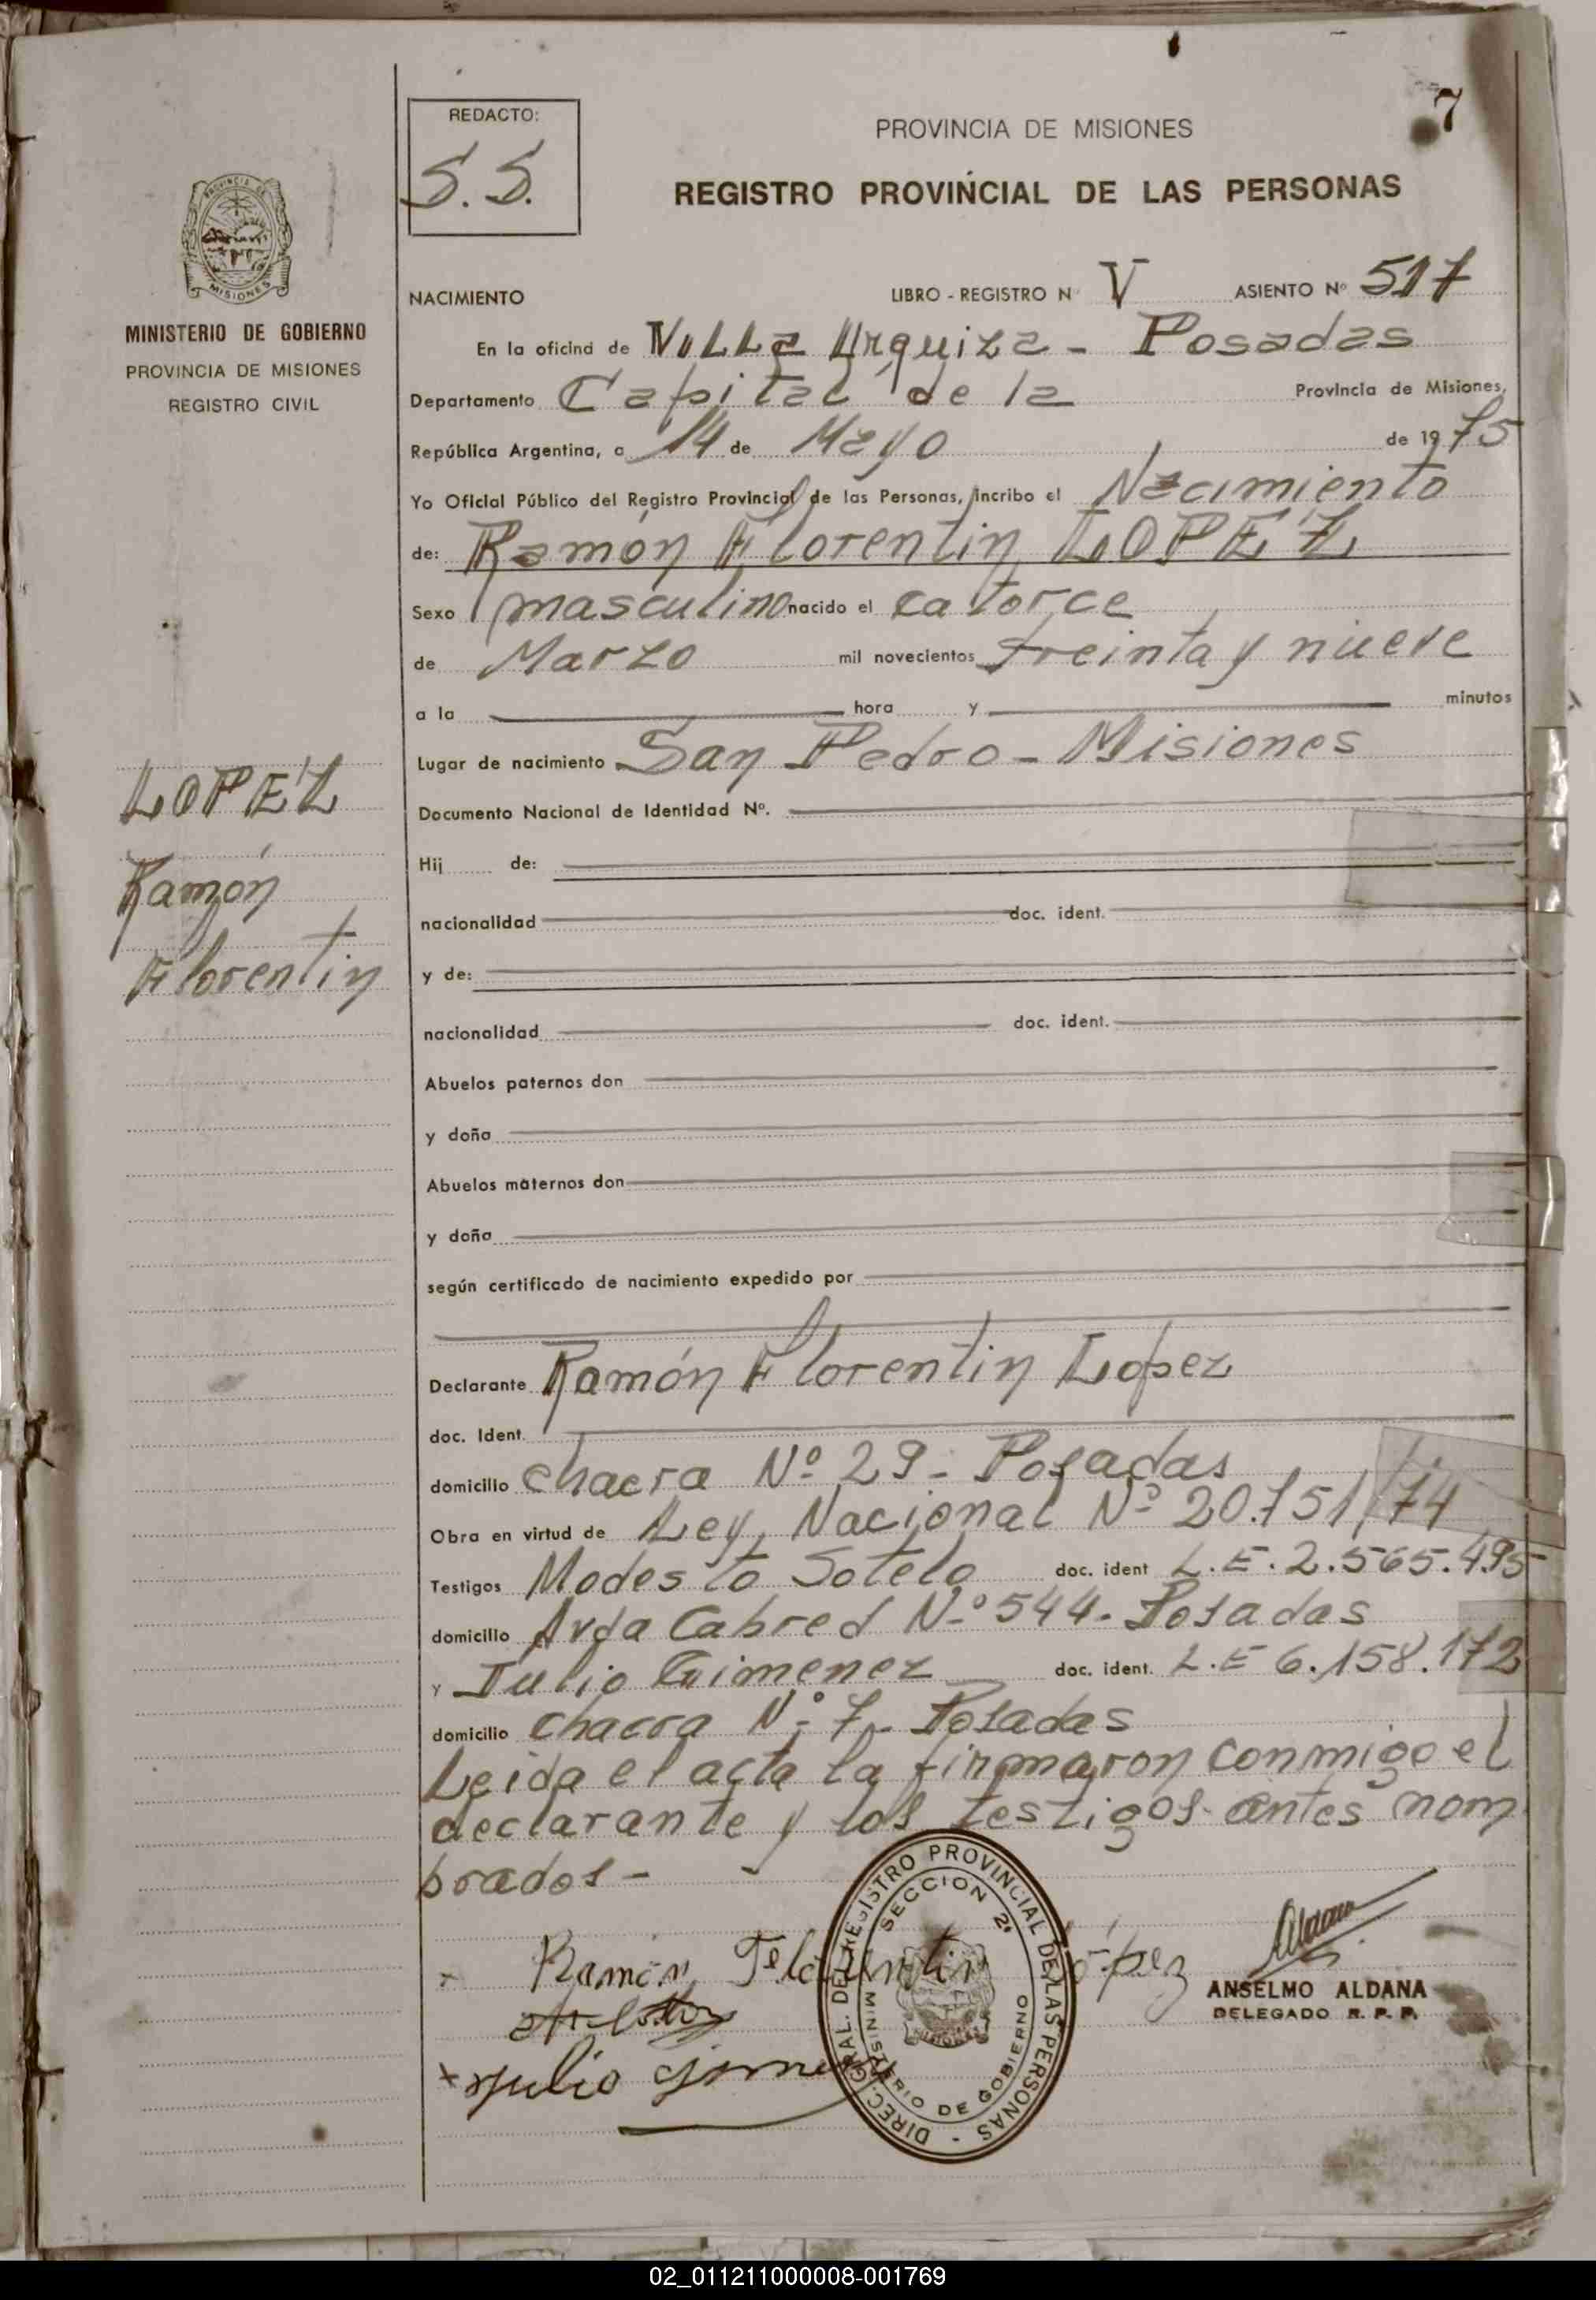 7
REDACTO:
S.S.
PROVINCIA DE MISIONES
REGISTRO PROVINCIAL DE LAS PERSONAS
PROVINCIA DE
MISIONES
MINISTERIO DE GOBIERNO
PROVINCIA DE MISIONES
REGISTRO CIVIL
NACIMIENTO LIBRO - REGISTRO Nº V ASIENTO Nº 517
En la oficina de Villa Urquiza - Posadas
Departamento Capital de la Provincia de Misiones,
República Argentina, a 14 de Mayo de 1975
Yo Oficial Público del Registro Provincial de las Personas, incribo el Nacimiento
de: Ramón Florentin LOPEZ
Sexo masculino nacido el catorce
de Marzo mil novecientos treinta y nueve
a la hora y minutos
Lugar de nacimiento San Pedro - Misiones
LOPEZ
Ramón
Florentin
Documento Nacional de Identidad Nº.
Hij de:
nacionalidad doc. ident.
y de:
nacionalidad doc. ident.
Abuelos paternos don
y doña
Abuelos maternos don
y doña
según certificado de nacimiento expedido por
Declarante Ramón Florentin Lopez
doc. Ident.
domicilio chacra Nº 29 - Posadas
Obra en virtud de Ley, Nacional Nº 20.751/74
Testigos Modesto Sotelo doc. ident L.E. 2.565.495
domicilio Avda Cabred Nº 544 - Posadas
y Julio Gimenez doc. ident. L.E 6.158.172
domicilio chacra Nº 7 - Posadas
Leida el acta la firmaron conmigo el
declarante y los testigos antes nom
brados -
Ramón Florentin López
Julio Gimenez
DIREC. GRAL. DEL REGISTRO PROVINCIAL DE LAS PERSONAS -
SECCION 2ª
MINISTERIO DE GOBIERNO
ANSELMO ALDANA
DELEGADO R. P. P.
02_011211000008-001769